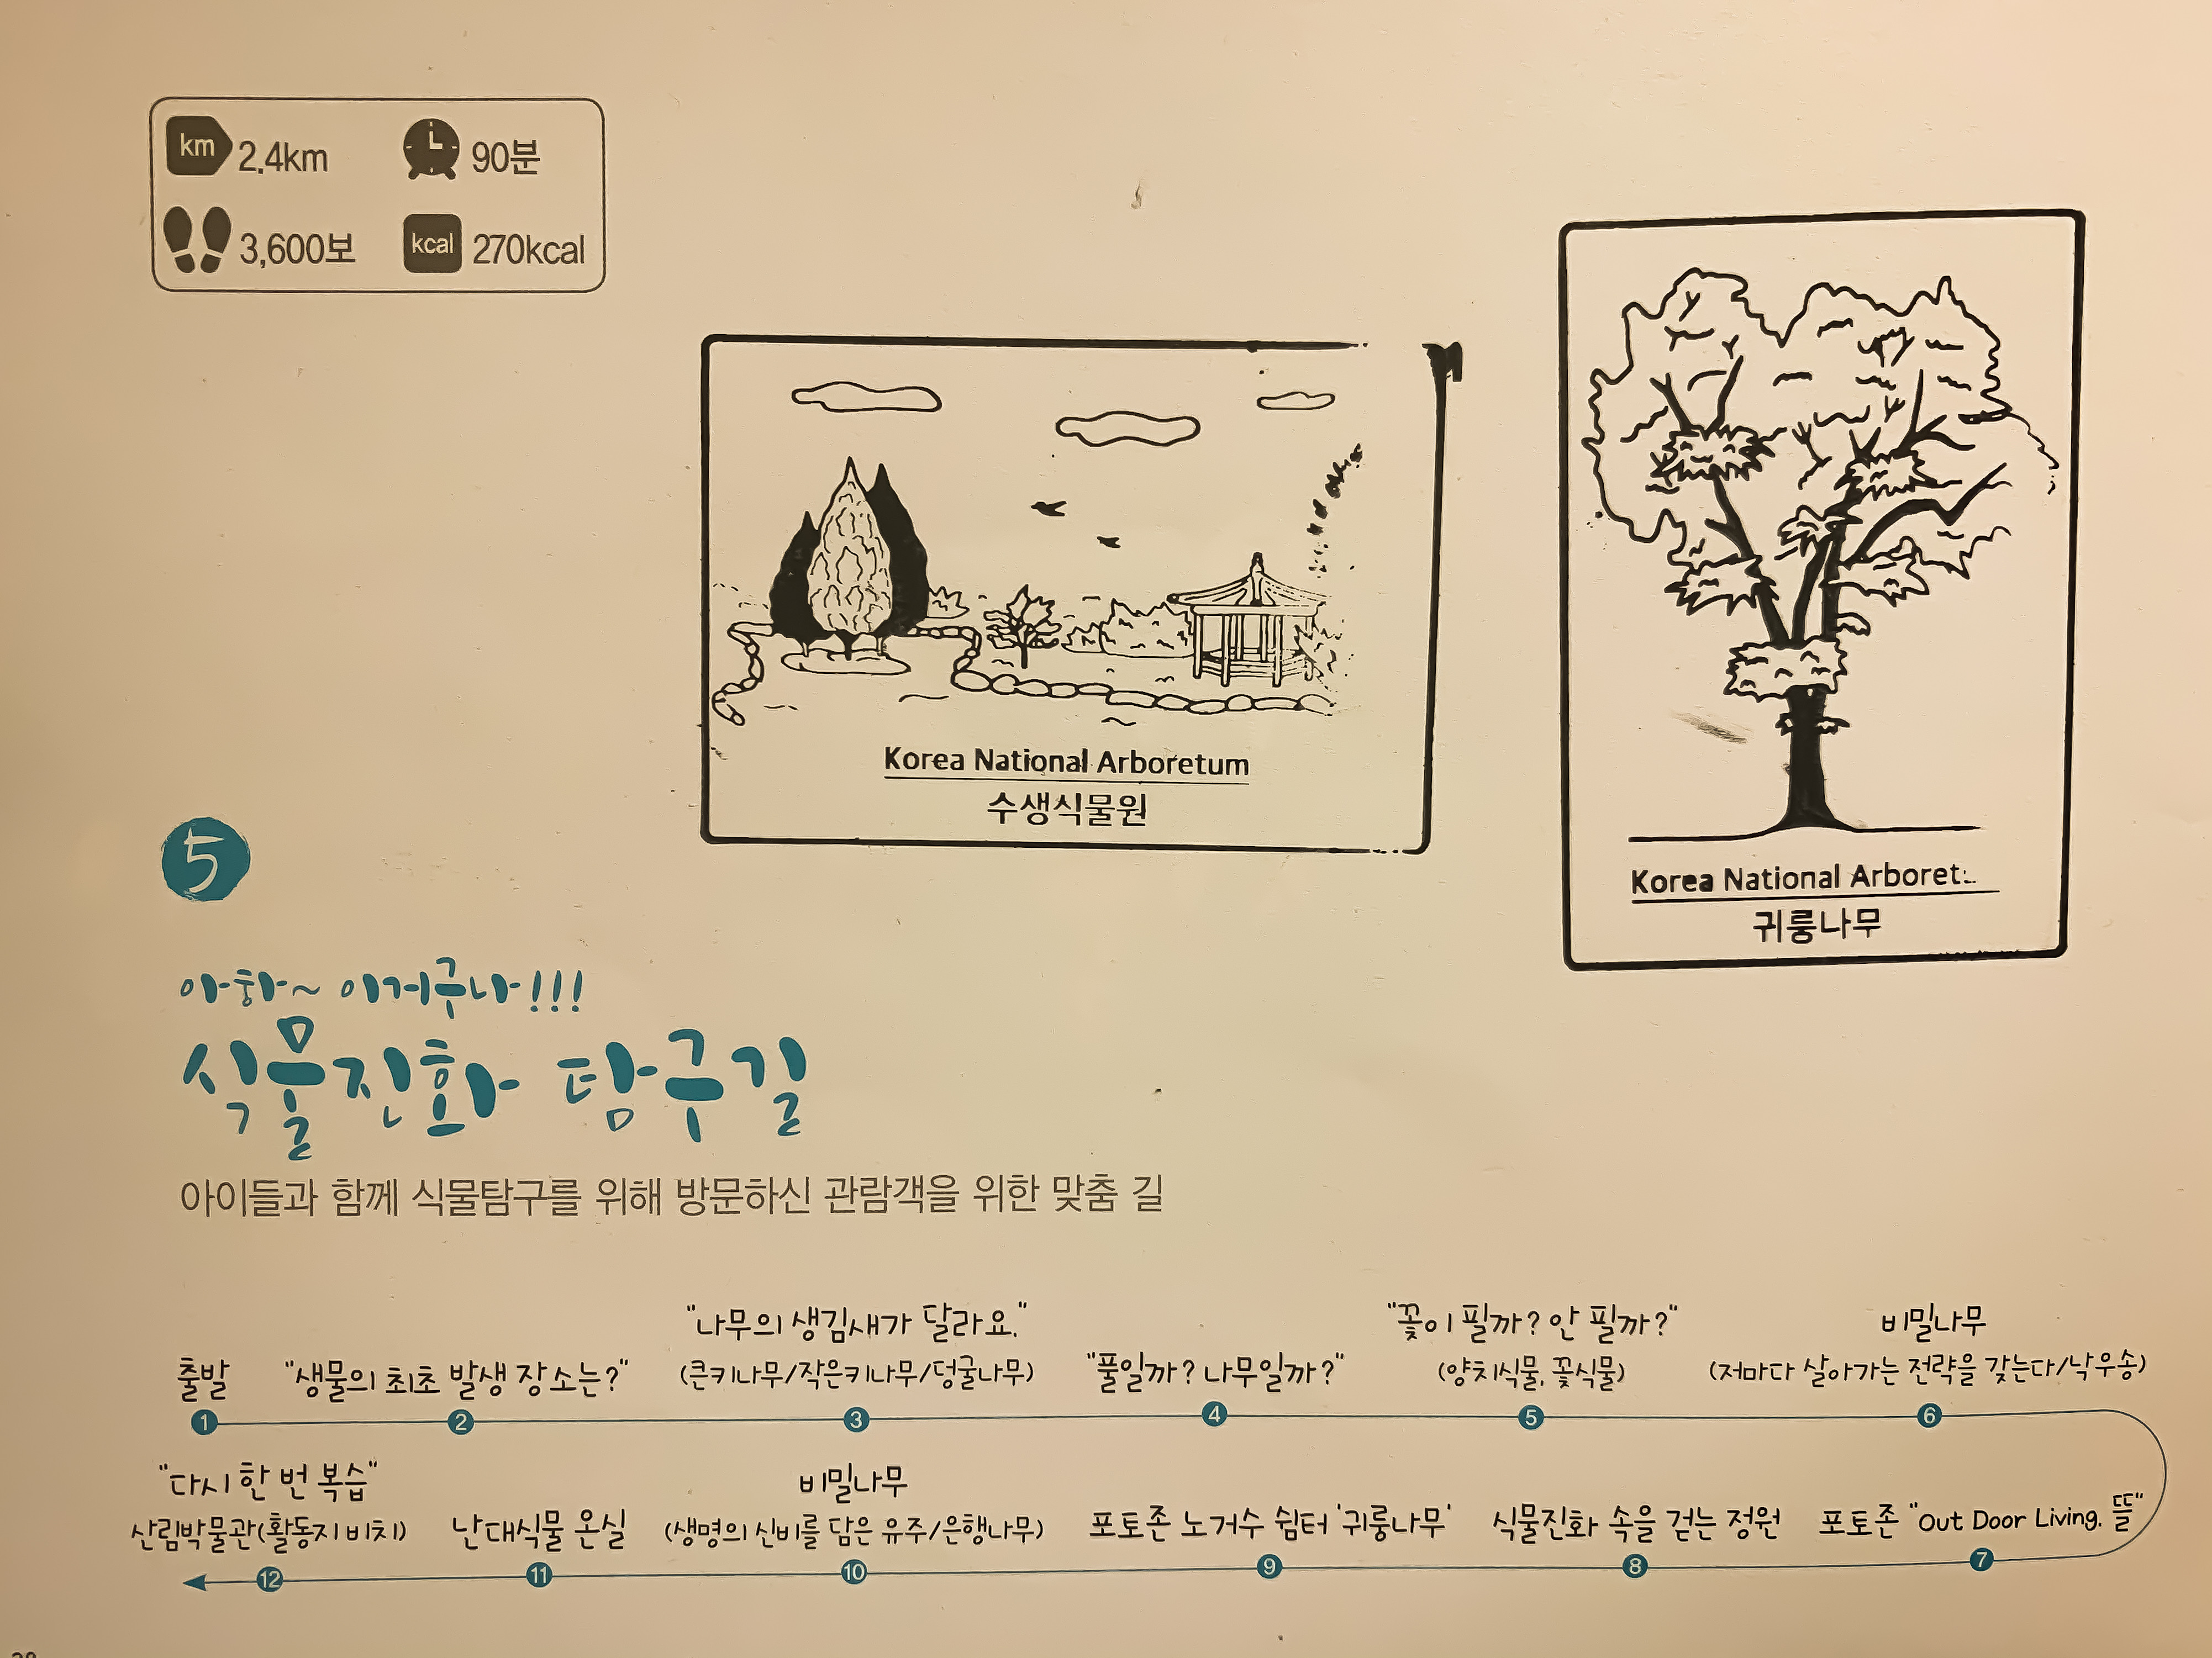 km 2.4km 90분
3,600보 kcal 270kcal
Korea National Arboretum
수생식물원
Korea National
귀룽나무
5
아하~ 이거구나!!!
식물진화 탐구길
아이들과 함께 식물탐구를 위해 방문하신 관람객을 위한 맞춤 길
출발
1
"생물의 최초 발생 장소는?"
2
"나무의 생김새가 달라요."
(큰키나무/작은키나무/덩굴나무)
3
"풀일까? 나무일까?"
4
"꽃이 필까? 안 필까?"
(양치식물, 꽃식물)
5
비밀나무
(저마다 살아가는 전략을 갖는다/낙우송)
6
포토존 "Out Door Living. 뜰"
7
식물진화 속을 걷는 정원
8
포토존 노거수 쉼터 '귀룽나무'
9
비밀나무
(생명의 신비를 담은 유주/은행나무)
10
난대식물 온실
11
"다시 한 번 복습"
산림박물관(활동지 비치)
12